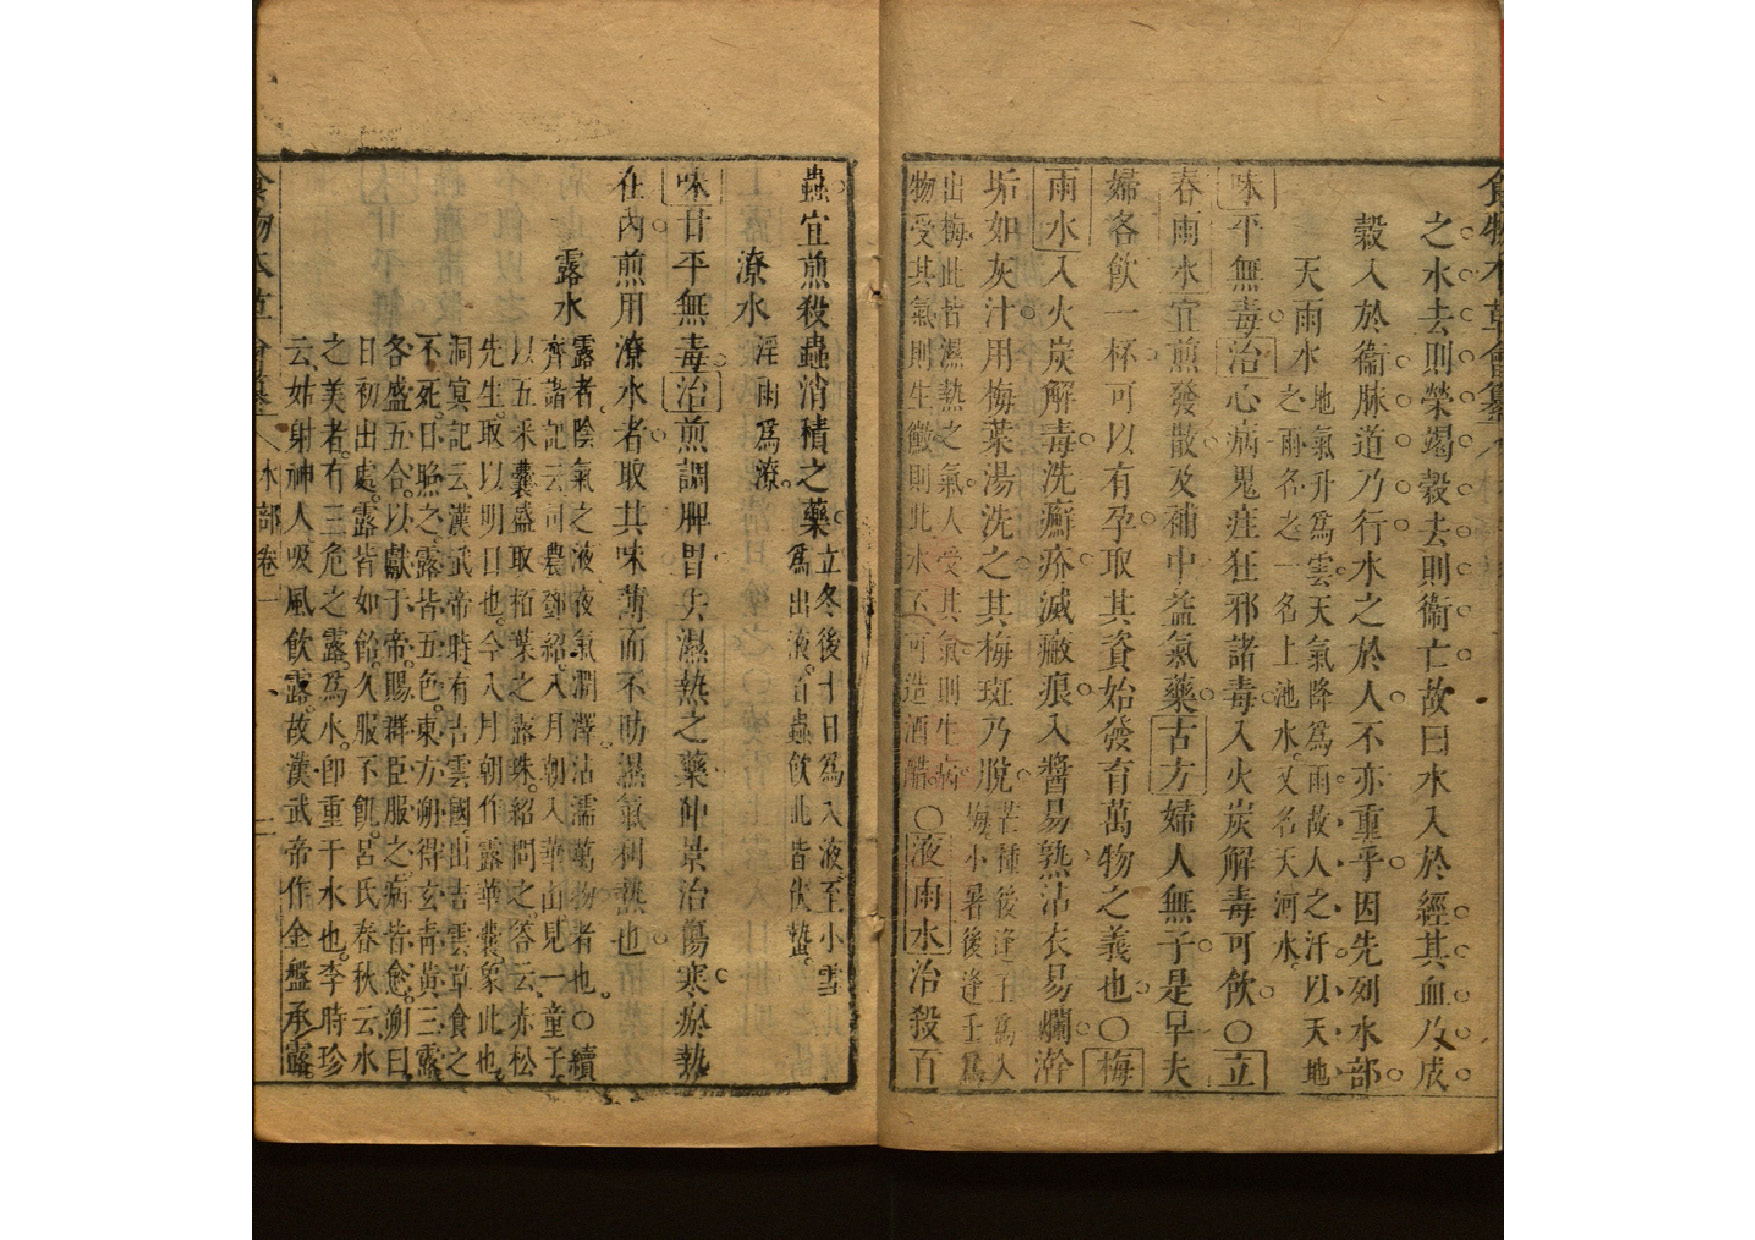 食物本草會纂
之水去則榮竭穀去則衞亡故曰水入於經其血乃成
穀入於衞脉道乃行水之於人不亦重乎因先列水部
天雨水
地氣升爲雲天氣降爲雨故人之汗以天地
之雨名之一名上池水又名天河水
味平無毒治心病鬼疰狂邪諸毒入火炭解毒可飲〇立
春雨水宜煎發散及補中益氣藥古方婦人無子是早夫
婦各飲一杯可以有孕取其資始發育萬物之義也〇梅
雨水入火炭解毒洗癬疥滅瘢痕入醬易熟沾衣易爛澣
垢如灰汁用梅葉湯洗之其梅斑乃脫
芒種後逢壬爲入
梅小暑後逢壬爲
出梅此皆濕熱之氣人受其氣則生病
物受其氣則生黴則此水不可造酒醋
〇液雨水治殺百
蟲宜煎殺蟲消積之藥
立冬後十日爲入液至小雪
爲出液百蟲飲此皆伏蟄
潦水
淫雨爲潦
味甘平無毒治煎調脾胃去濕熱之藥仲景治傷寒瘀熱
在內煎用潦水者取其味薄而不助濕氣利熱也
露水
露者陰氣之液夜氣潤澤沾濡萬物者也〇續
齊諧記云司農鄧紹八月朝入華山見一童子
以五采囊盛取栢葉之露珠紹問之答云赤松
先生取以明目也今人八月朝作露華囊象此也
洞冥記云漢武帝時有吉雲國出吉雲草食之
不死日照之露皆五色東方朔得玄靑黃三露
各盛五合以獻于帝賜群臣服之病皆愈朔曰
日初出處露皆如飴久服不飢呂氏春秋云水
之美者有三危之露爲水卽重于水也李時珍
云姑射神人吸風飲露故漢武帝作金盤承露
食物本草會纂 水部卷一 二